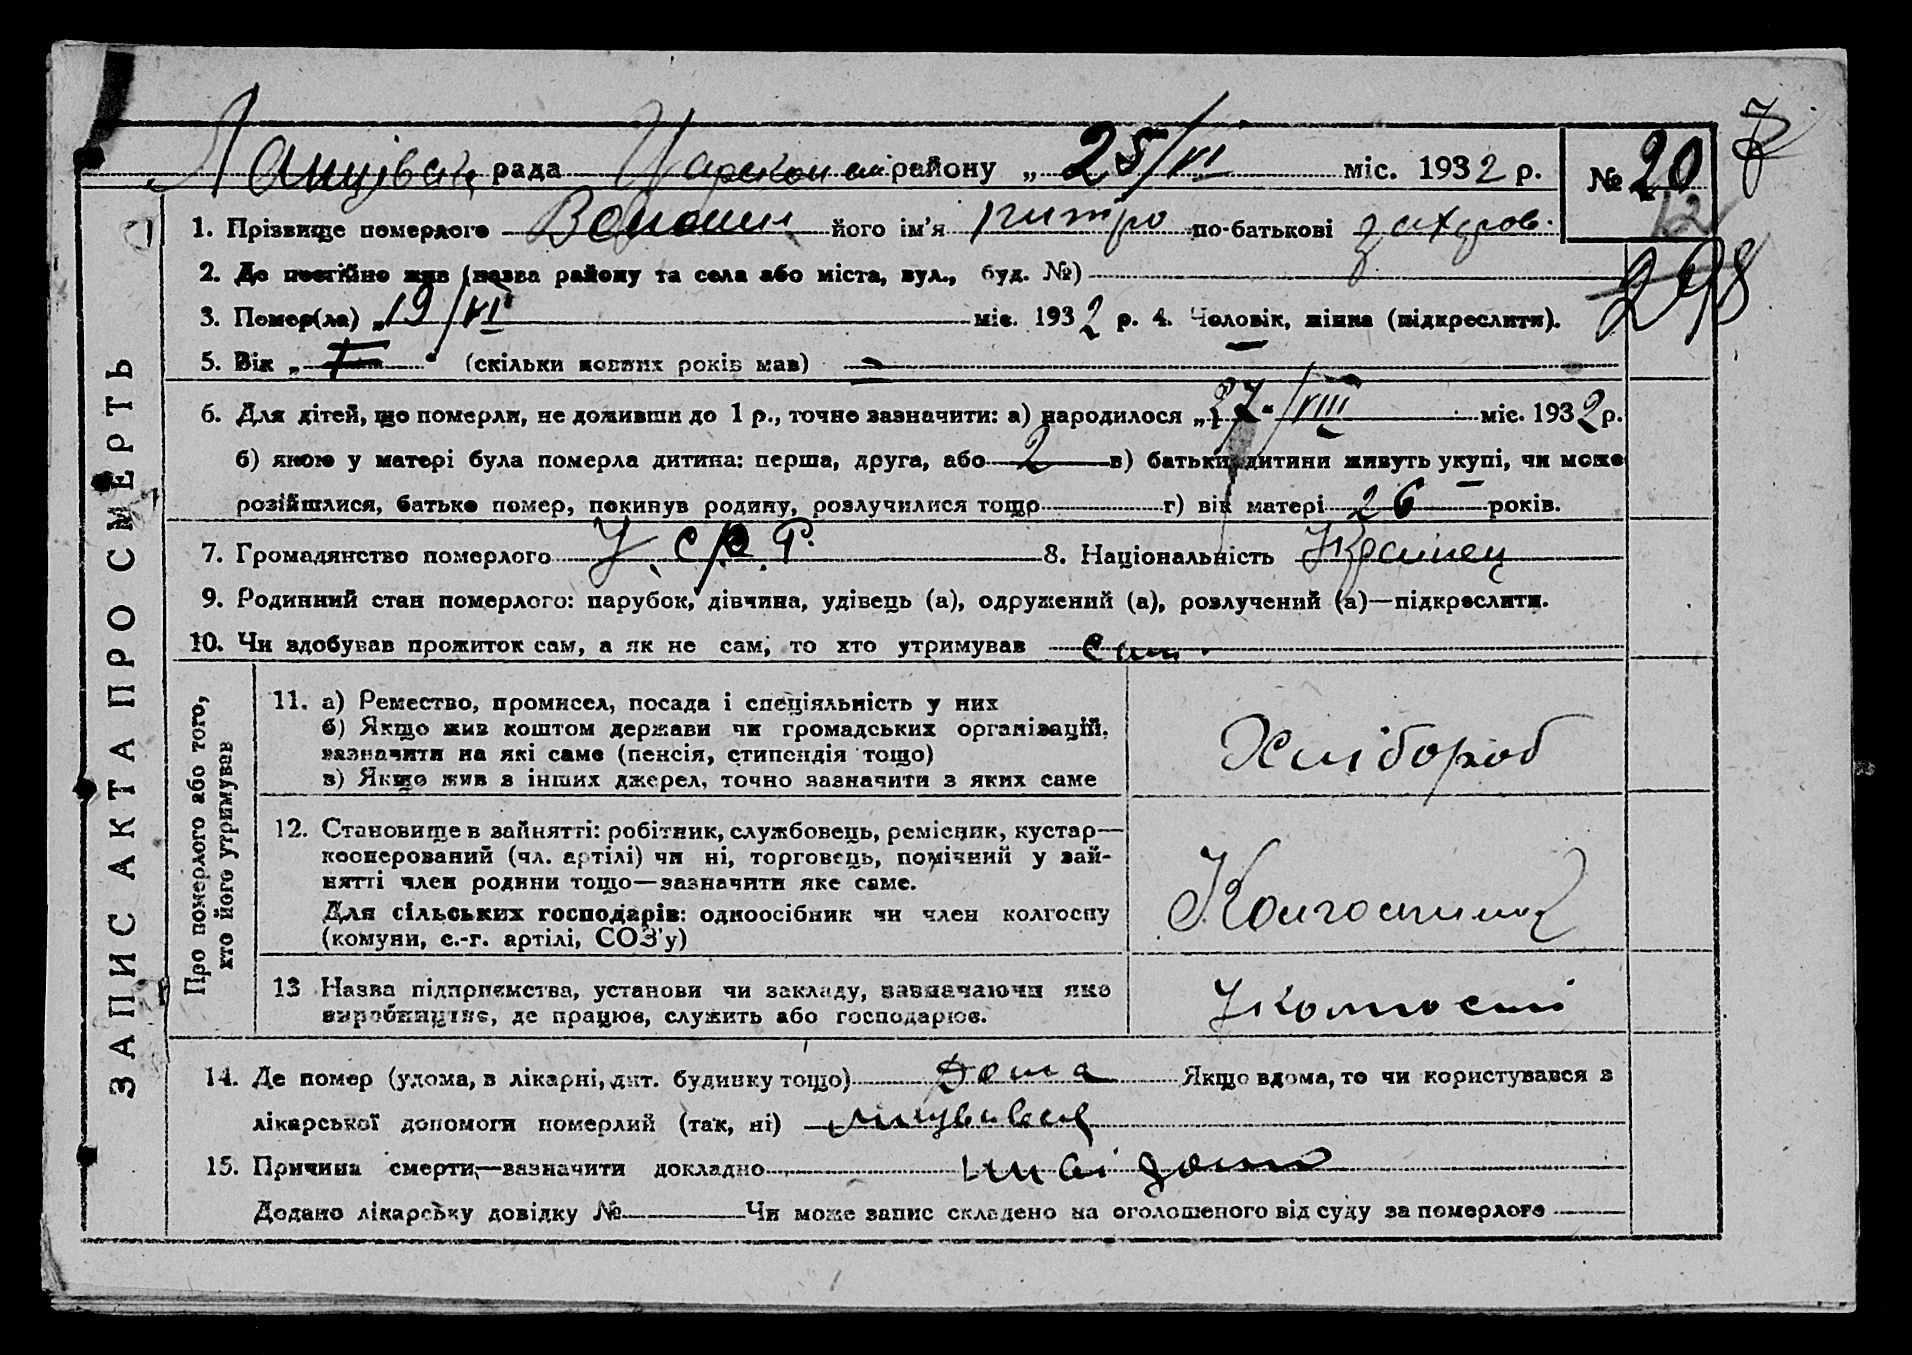 рада району „ 25/VI міс. 1932 р. № 20
1. Прізвище померлого Волошин його ім'я по-батькові Захаров.
12
2. Де постійно жив (назва району та села або міста, вул., буд. №)
298
3. Помер(ла) „ 19/VI міс. 1932 р. 4. Чоловік, жінка (підкреслити).
5. Вік „ (скільки повних років мав)
6. Для дітей, що померли, не доживши до 1 р., точно зазначити: а) народилося „ 27/VIII міс. 1932 р.
б) якою у матері була померла дитина: перша, друга, або 2 в) батьки дитини живуть укупі, чи може
розійшлися, батько помер, покинув родину, розлучилися тощо г) вік матері 26 років.
7. Громадянство померлого У. С. Р. Р. 8. Національність Українец
9. Родинний стан померлого: парубок, дівчина, удівець (а), одружений (а), розлучений (а)—підкреслити.
10. Чи здобував прожиток сам, а як не сам, то хто утримував сам.
ЗАПИС АКТА ПРО СМЕРТЬ
Про померлого або того, хто його утримував
11. а) Ремество, промисел, посада і спеціяльність у них
б) Якщо жив коштом держави чи громадських організацій,
зазначити на які саме (пенсія, стипендія тощо)
в) Якщо жив з інших джерел, точно зазначити з яких саме
Хлібороб
12. Становище в зайнятті: робітник, службовець, ремісник, кустар—
кооперований (чл. артілі) чи ні, торговець, помічний у зай-
нятті член родини тощо—зазначити яке саме.
Для сільських господарів: одноосібник чи член колгоспу
(комуни, с.-г. артілі, СОЗ'у)
Колгоспник
13 Назва підприємства, установи чи закладу, зазначаючи яке
виробництво, де працюв, служить або господарюв.
У колгоспі
14. Де помер (удома, в лікарні, дит. будинку тощо) Дома Якщо вдома, то чи користувався з
лікарської допомоги померлий (так, ні)
15. Причина смерти,—зазначити докладно
Додано лікарську довідку № Чи може запис складено на оголошеного від суду за померлого